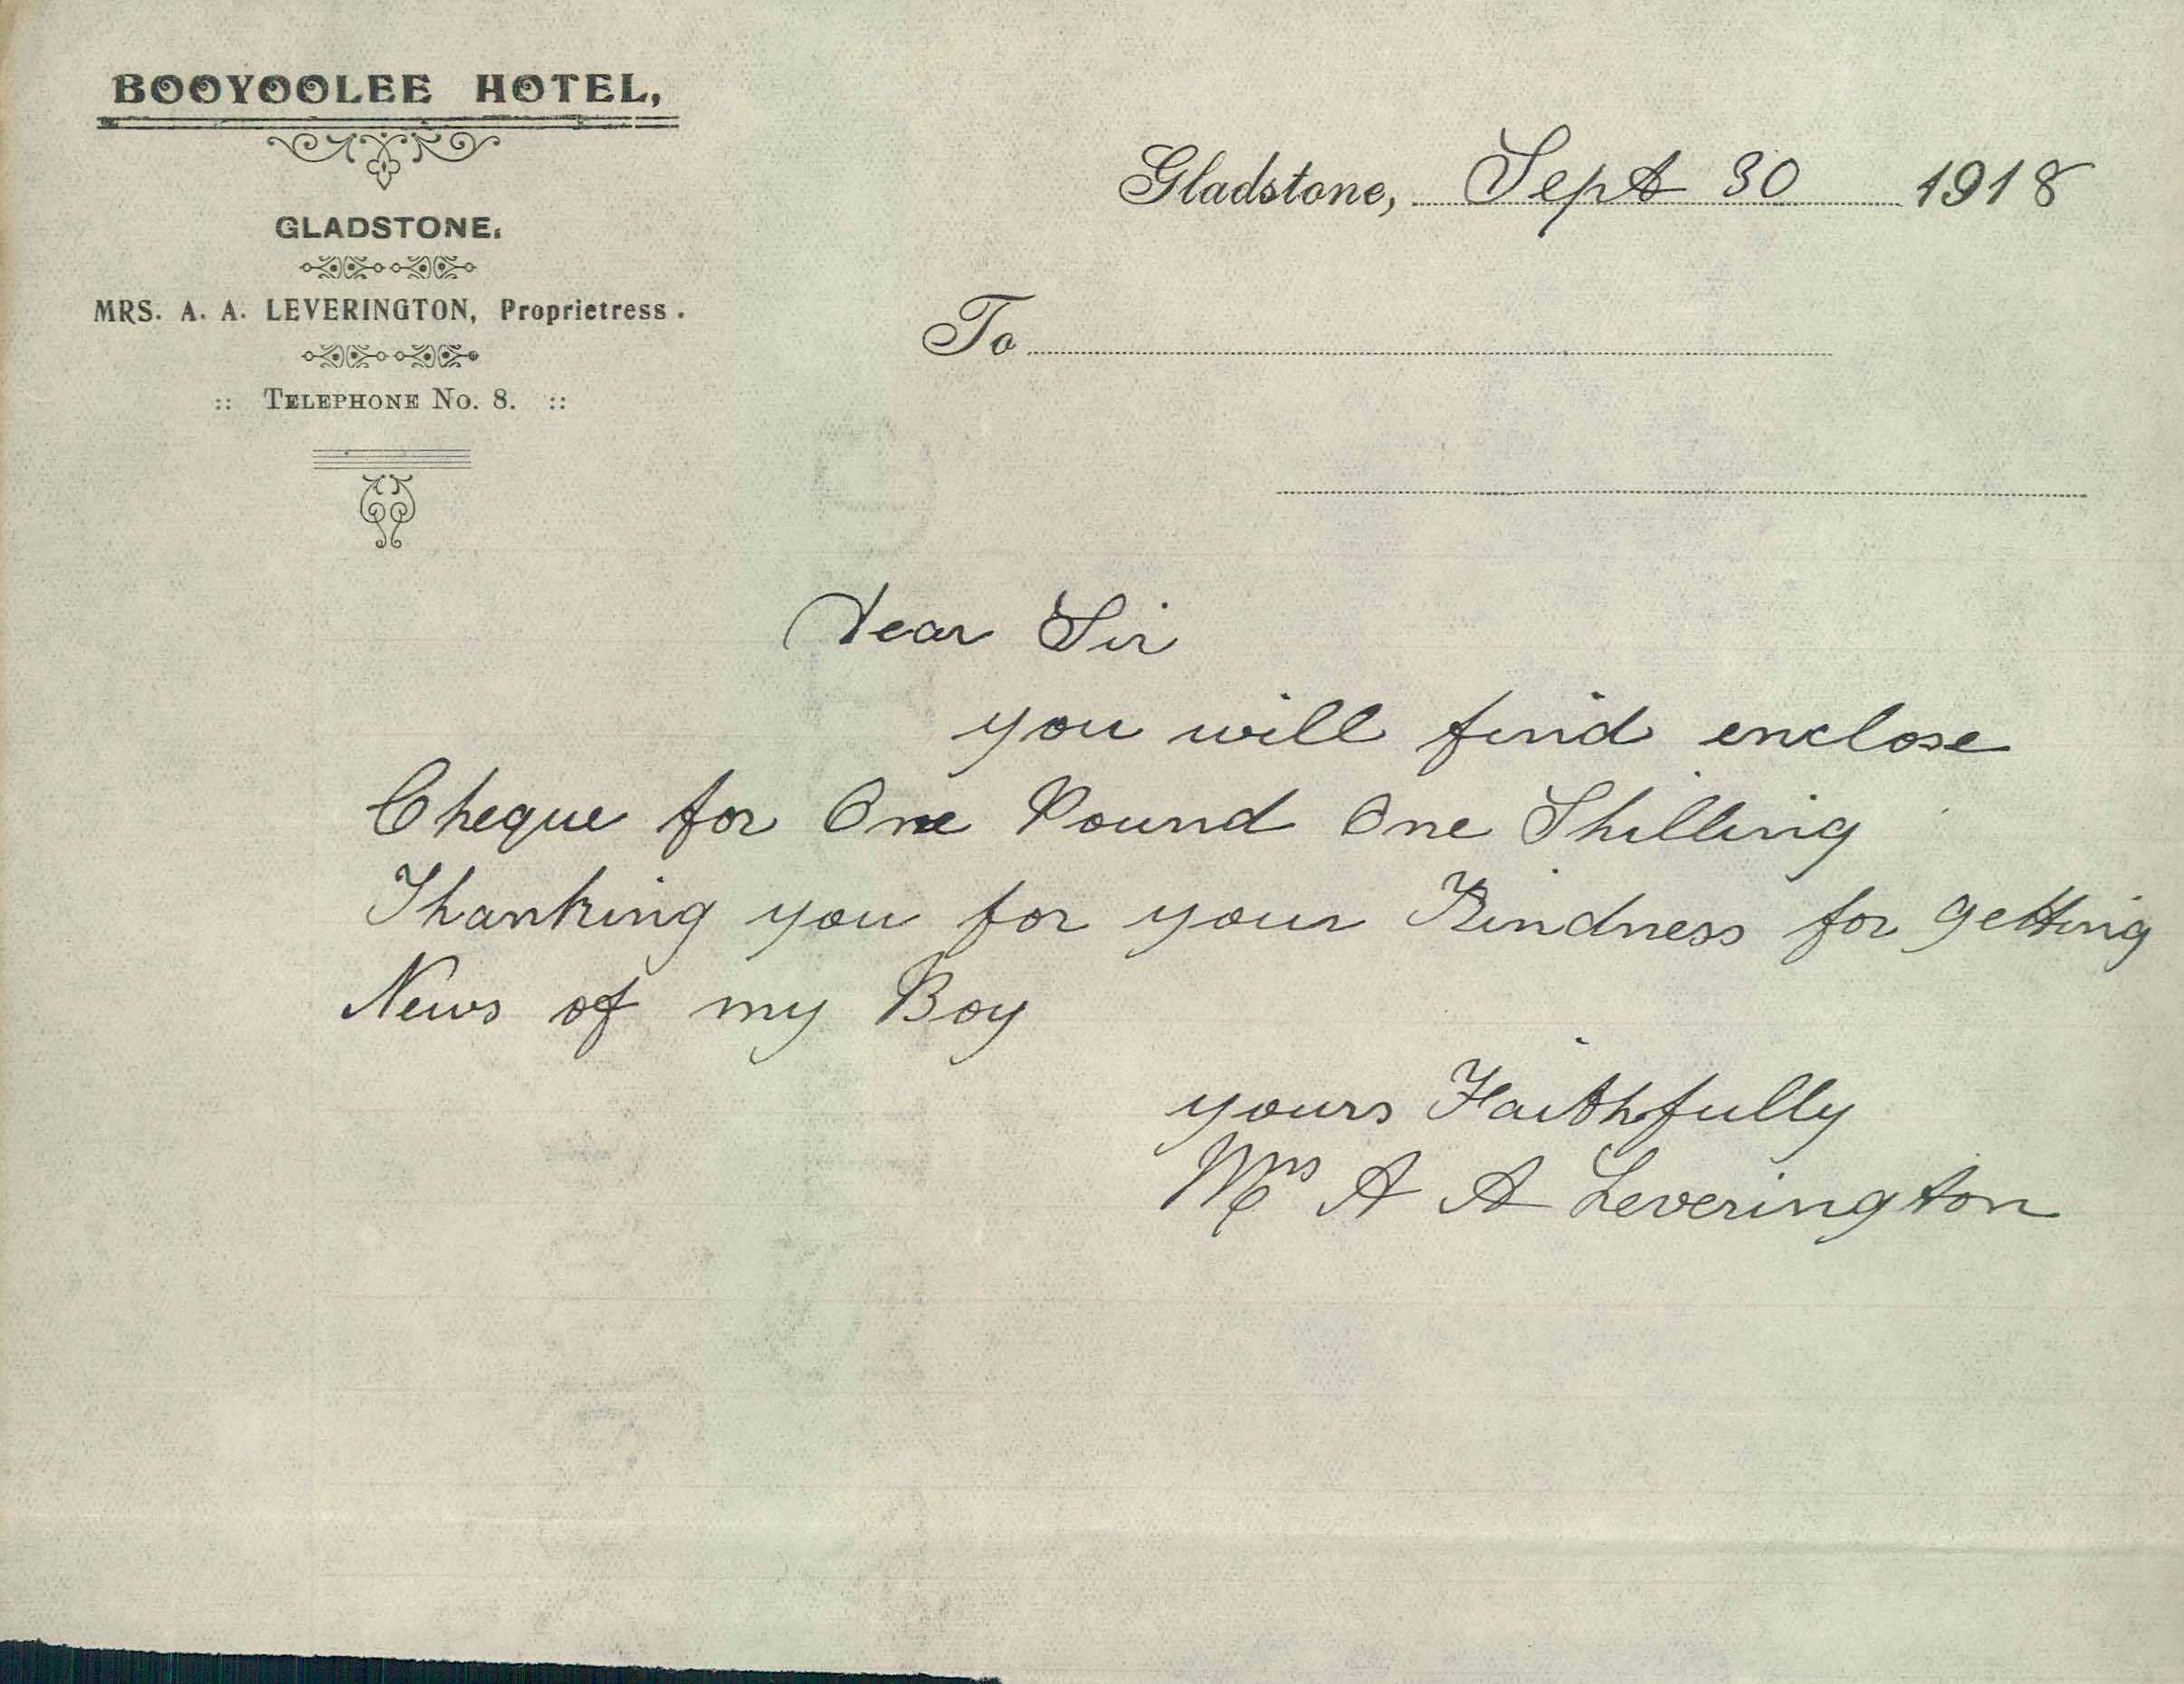 BOOYOOLEE HOTEL,
GLADSTONE.
MRS. A. A. LEVERINGTON, Proprietress.
:: TELEPHONE No. 8. ::
Gladstone, Sept 30 1918
To
Dear Sir
you will find enclose
Cheque for One Pound One Shilling
Thanking you for your Kindness for getting
News of my Boy
yours Faithfully
Mrs A A Leverington